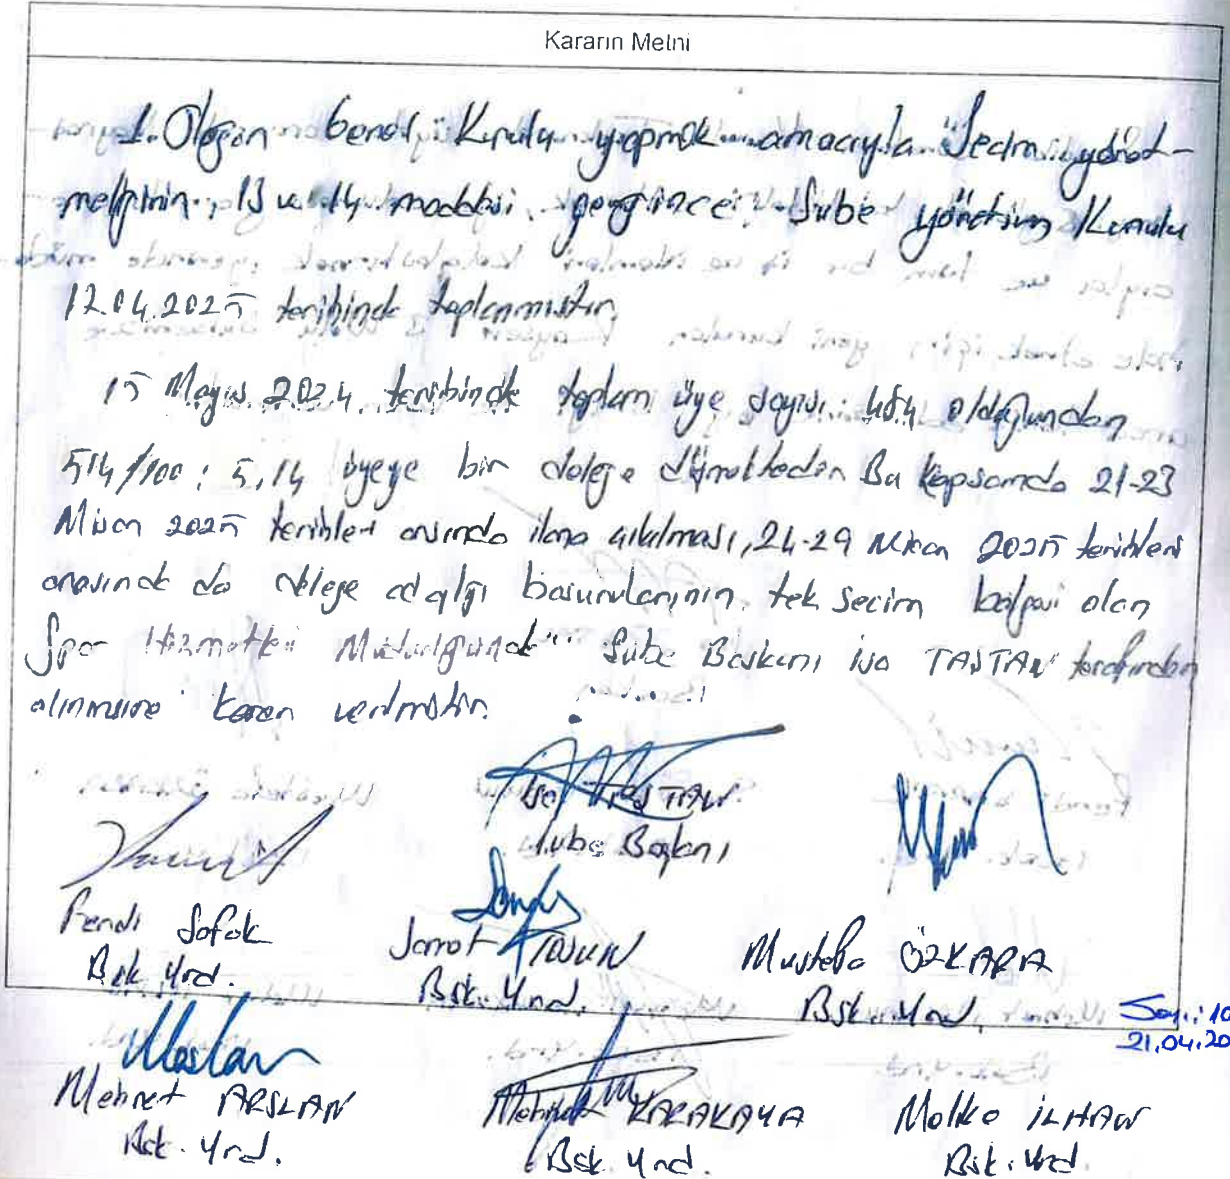 Kararın Metni
1. Olağan Genel Kurulu yapmak amacıyla Seçim yönet-
meliğinin 13 ve 14 maddesi gereğince Şube yönetim Kurulu
12.04.2025 tarihinde toplanmıştır.
15 Mayıs 2024 tarihinde toplam üye sayısı olduğundan
514/100: 5,14 üyeye bir delege düşmektedir Bu kapsamda 21-23
Nisan 2025 tarihleri arasında ilana çıkılması, 24-29 Nisan 2025 tarihleri
arasında da delege adaylığı başvurularının tek seçim bölgesi olan
Spor Hizmetleri Müdürlüğünde Şube Başkanı İsa TAŞTAN tarafından
alınmasına karar verilmiştir.
İsa TAŞTAN
Şube Başkanı
Şafak
Bşk. Yrd.
TOSUN
Bşk. Yrd.
Mustafa ÖZKARA
Bşk. Yrd.
Sayı: 10
21.04.20
Mehmet ARSLAN
Bşk. Yrd.
Mehmet KARAKAYA
Bşk. Yrd.
İLHAN
Bşk. Yrd.